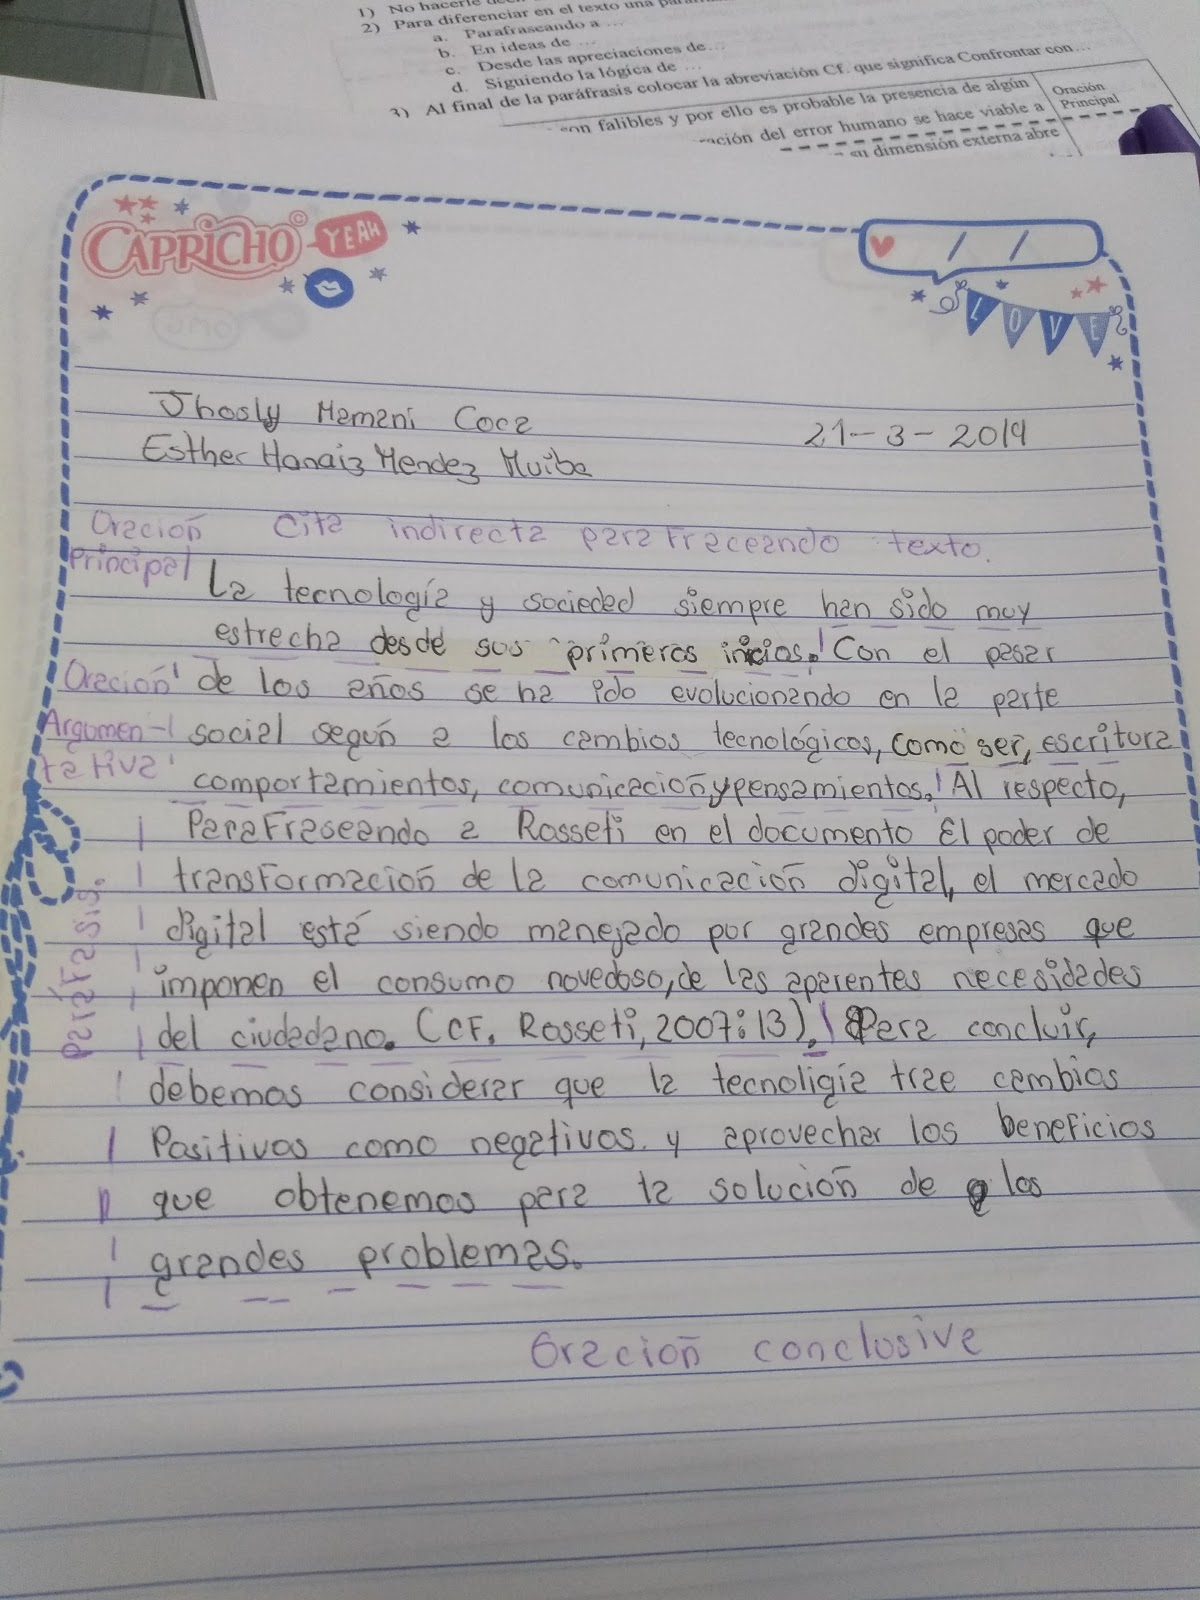 1) No hacerle
2) Para diferenciar en el texto una
a. Parafraseando a ...
b. En ideas de ...
c. Desde las apreciaciones de...
d. Siguiendo la lógica de ...
3) Al final de la paráfrasis colocar la abreviación Cf. que significa Confrontar con...
son falibles y por ello es probable la presencia de algún
Oración
Principal
ción del error humano se hace viable a
su dimensión externa abre
CAPRICHO © YEAH
/ /
LOVE
Jhosly Mamani Coca
21-3-2019
Esther Hanaiz Mendez Muiba
Oracion Cita indirecta para Fraceando texto.
Principal
La tecnología y sociedad siempre han sido muy
estrecha desde sus primeros inicios. Con el pasar
Oracion de los años se ha ido evolucionando en la parte
Argumen- social según a los cambios tecnológicos, como ser, escritura
tativa comportamientos, comunicacion y pensamientos. Al respecto,
ParaFraseando a Rosseti en el documento El poder de
transFormacion de la comunicacion digital, el mercado
digital está siendo manejado por grandes empresas que
imponen el consumo novedoso, de las aparentes necesidades
del ciudadano. (CF. Rosseti, 2007:13). Para concluir,
debemos considerar que la tecnoligia trae cambios
Positivos como negativos. y aprovechar los beneficios
que obtenemos para la solucion de los
grandes problemas.
ParáFasis.
Oracion conclusive